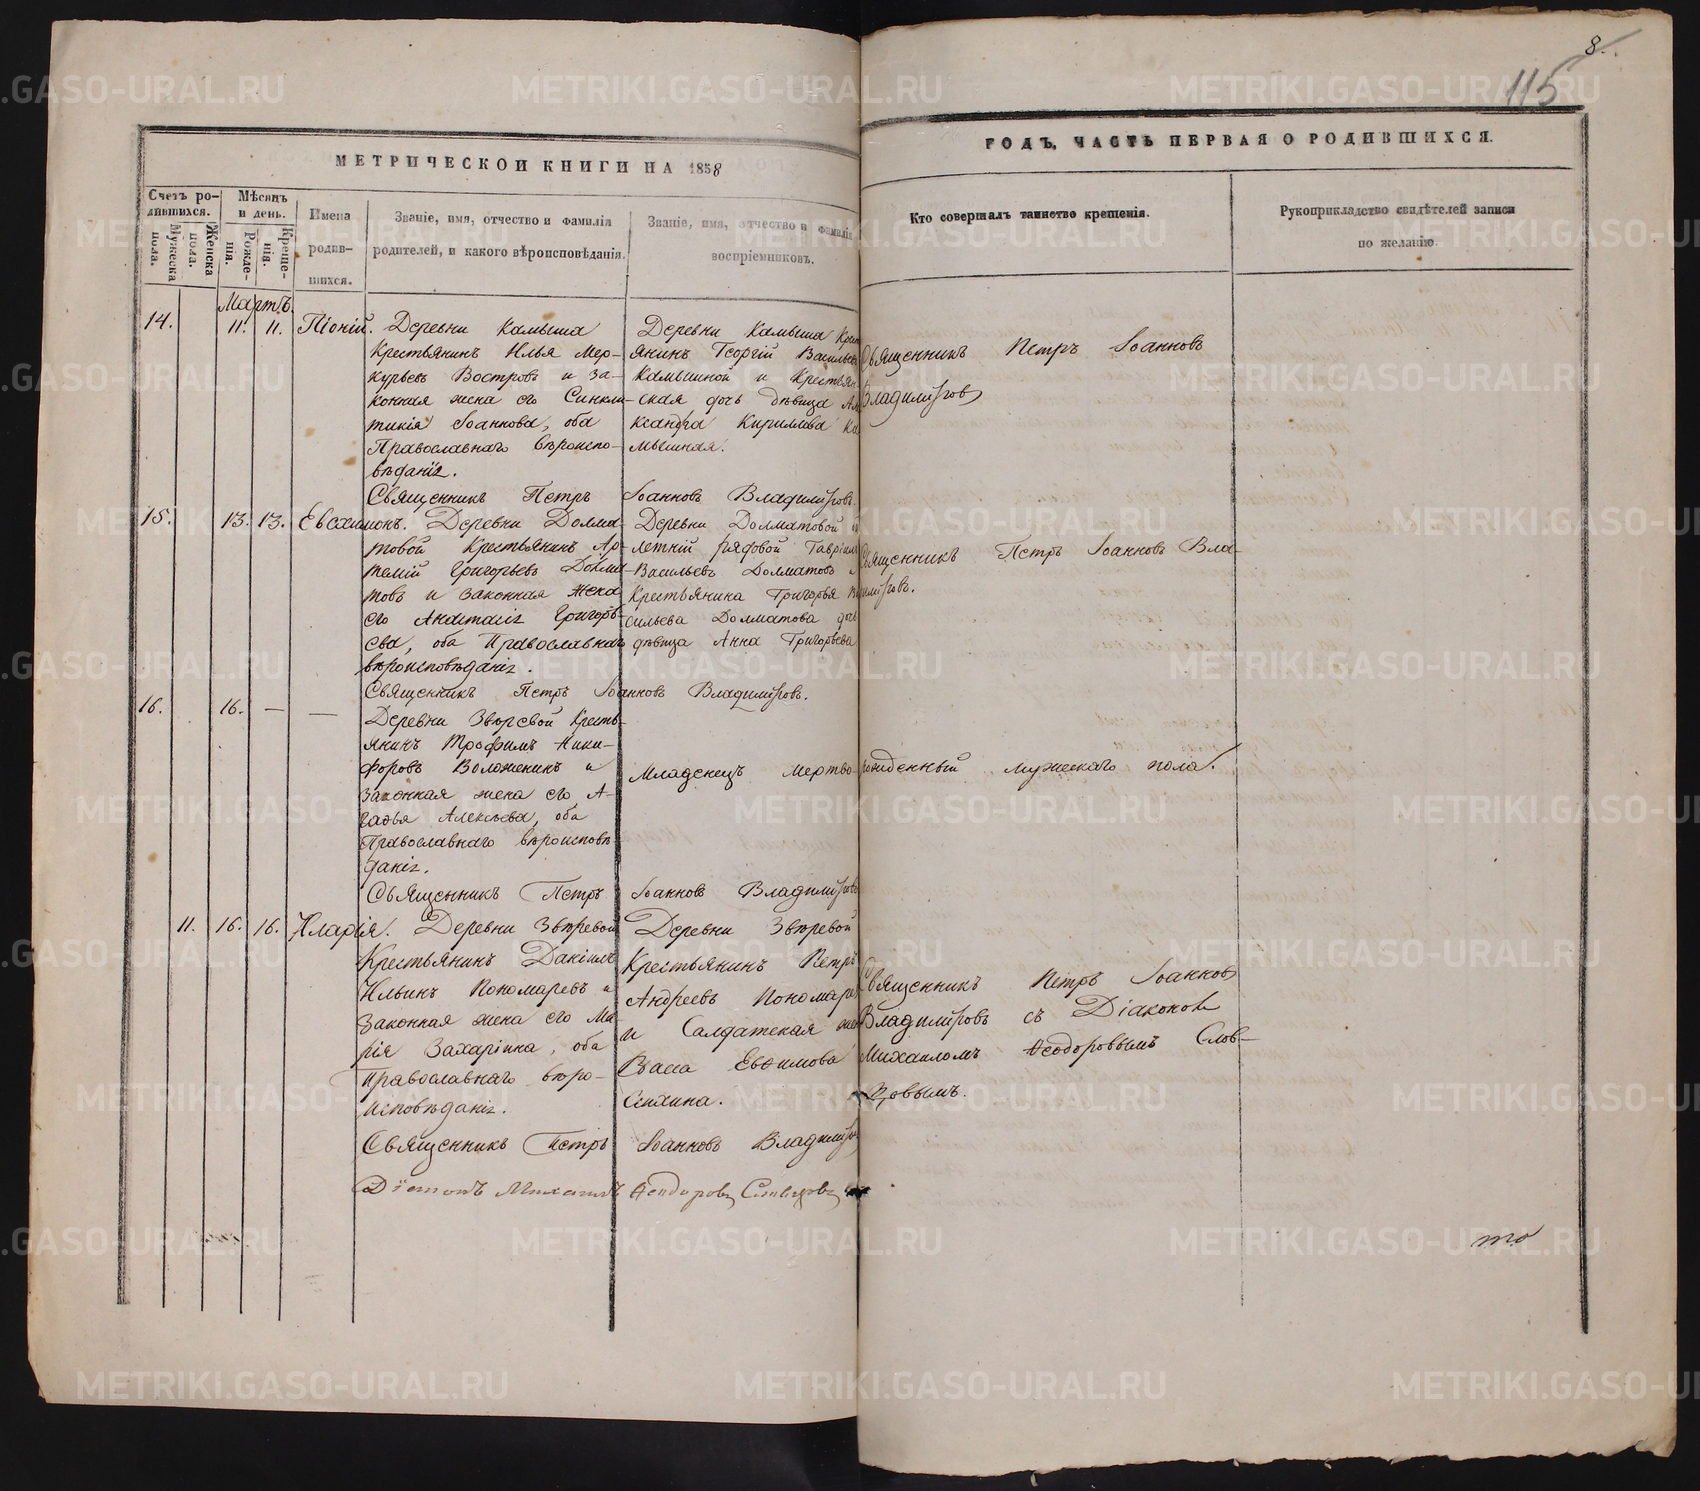 8.
115
МЕТРИЧЕСКОЙ КНИГИ НА 1858
ГОДЪ, ЧАСТЬ ПЕРВАЯ О РОДИВШИХСЯ.
Счетъ ро-
дившихся.
Мужеска
пола.
Женска
пола.
Мѣсяцъ
и день.
Рожде-
нія.
Креще-
нія.
Имена
родив-
шихся.
Званіе, имя, отчество и фамилія
родителей, и какого вѣроисповѣданія.
Званіе, имя, отчество и фамилія
воспріемниковъ.
Кто совершалъ таинство крещенія.
Рукоприкладство свидѣтелей записи
по желанію.
Мартъ.
14. 11. 11. Піоній.
Деревни Камыша
Крестьянинъ Илья Мер-
курьевъ Востровъ и за-
конная жена его Синкли-
тикія Іоаннова, оба
Православнаго вѣроиспо-
вѣданія.
Деревни Камыша Крест
янинъ Георгій Васильевъ
Камышной и Крестьян
ская дочь дѣвица Але
ксандра Кириллова Ка
мышная.
Священникъ Петръ Іоанновъ
Владиміровъ
Священникъ Петръ Іоанновъ Владиміровъ.
15. 13. 13. Евсхимонъ.
Деревни Долма-
товой Крестьянинъ Ар-
темій Григорьевъ Долма-
товъ и законная жена
его Анастасія Григорь-
ева, оба Православнаго
вѣроисповѣданія.
Деревни Долматовой
летній рядовой Гавріилъ
Васильевъ Долматовъ и
Крестьянина Григорья Ва
сильева Долматова дочь
дѣвица Анна Григорьева
Священникъ Петръ Іоанновъ Вла-
диміровъ.
Священникъ Петръ Іоанновъ Владиміровъ.
16. 16. — —
Деревни Звѣревой Кресть-
янинъ Трофимъ Ники-
форовъ Воложенинъ и
законная жена его А-
гафья Алексѣева, оба
Православнаго вѣроисповѣ
данія.
Младенецъ мертво-рожденный мужескаго пола.
Священникъ Петръ Іоанновъ Владиміровъ
11. 16. 16. Иларія.
Деревни Звѣревой
Крестьянинъ Даніилъ
Ильинъ Пономаревъ и
законная жена его Ма-
рія Захаріина, оба
православнаго вѣро-
исповѣданія.
Деревни Звѣревой
Крестьянинъ Петръ
Андреевъ Пономаре
и Салдатская жена
Васса Евѳимова
Сихина.
Священникъ Петръ Іоанновъ
Владиміровъ съ Діакономъ
Михаиломъ Ѳеодоровымъ Слов-
цовымъ.
Священникъ Петръ Іоанновъ Владиміровъ
Діаконъ Михаилъ Ѳеодоровъ Словцовъ